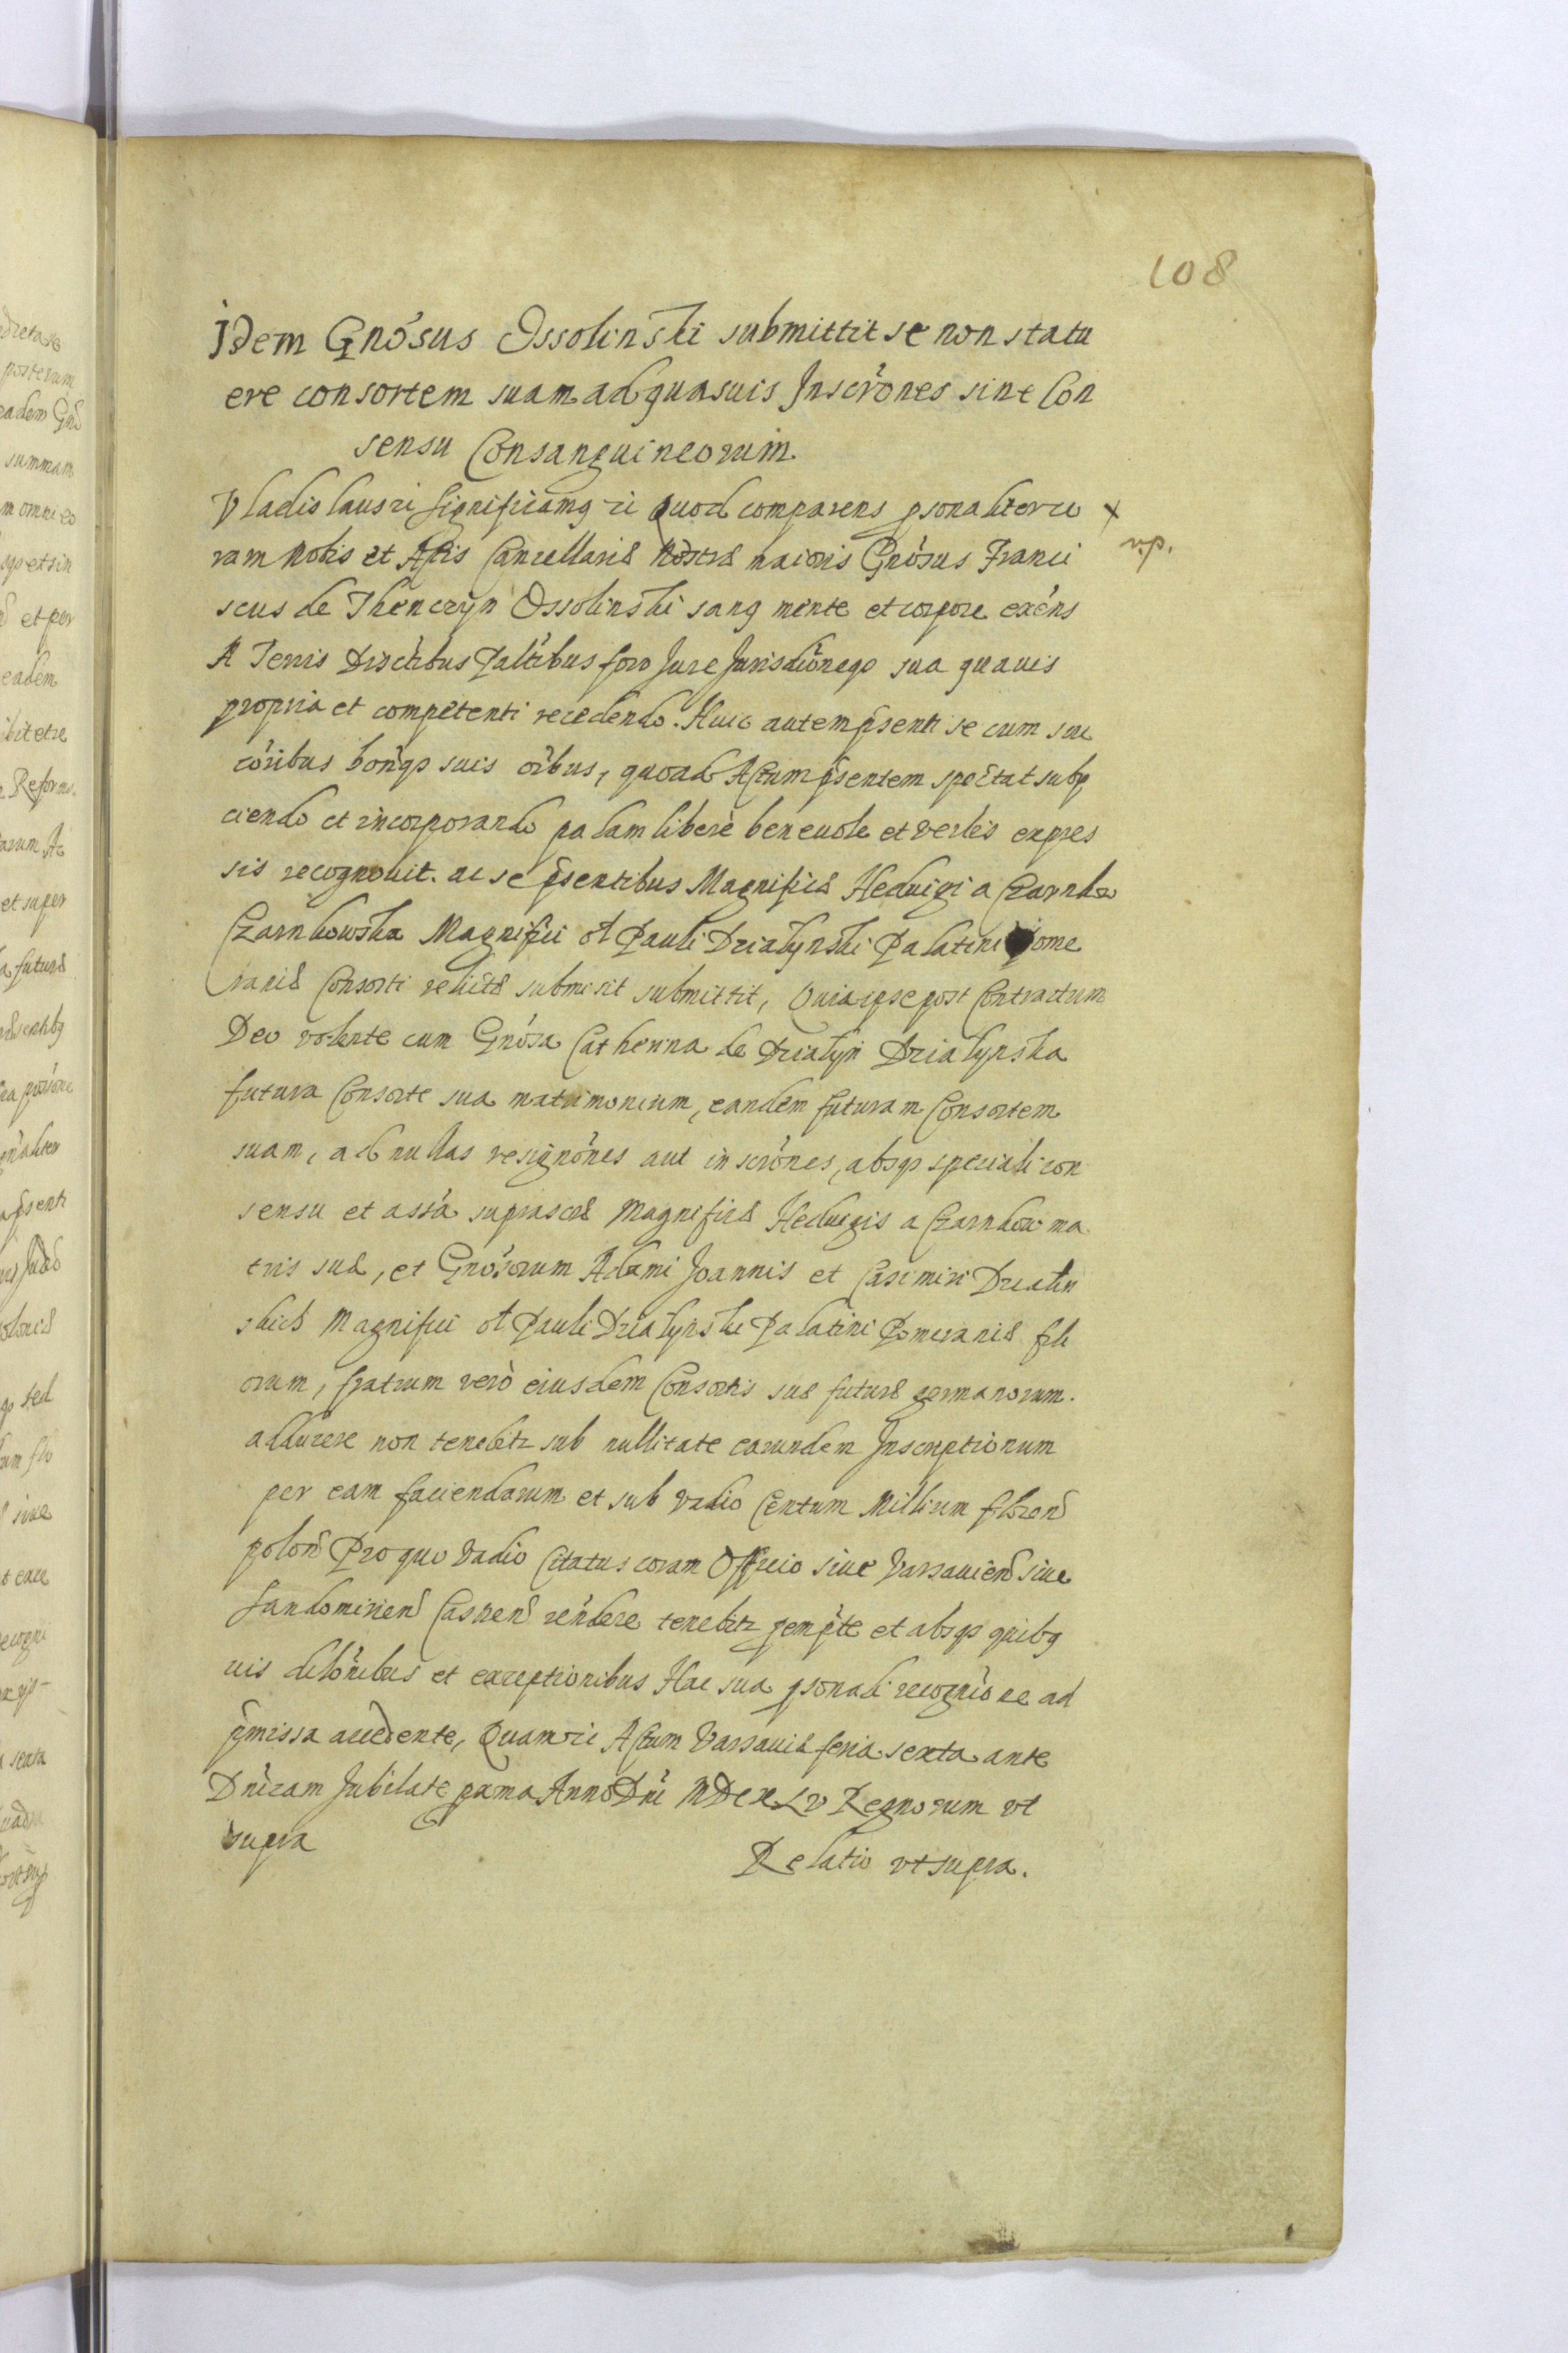 108
Idem Gnósus Ossolinski submittit se non statu
ere consortem suam ad quasuis Inscr̃ones sine Con
sensu Consanguineorum.
Vladislaus ꝛc Significamꝰ ꝛc Quod comparens ꝑsonaliter co x
ram Nobis et Actis Cancellariæ Nostræ maioris Gnósus Franci v.p.
scus de Thenczyn Ossolinski sanꝰ mente et corpore exẽns
A Terris Districtibus Palt̃ibus foro Jure Jurisdic̃oneqꝫ sua quauis
propria et competenti recedendo. Huic autem p̃senti se cum suc
cõribus bonisqꝫ suis oĩbus, quoad Actum p̃sentem spectat subij
ciendo et incorporando palam liberè beneuole et verbis expres
sis recognouit. ac se p̃sentibus Magnificæ Heduigi a Czarnkow
Czarnkowska Magnifici ol Pauli Dzialynski Palatini Pome
raniæ Consorti relictæ submisit submittit, Quia ipse post Contractum
Deo volente cum Gnósa Catherina de Dzialyn Dzialynska
futura Consorte sua matrimonium, eandem futuram Consortem
suam, ad nullas resignõnes aut inscr̃ones, absqꝫ speciali con
sensu et assã suprascr̃æ Magnificæ Heduigis a Czarnkow ma
tris suæ, et Gnósorum Adami Joannis et Casimiri Dzialin
skich Magnifici ol Pauli Dzialynski Palatini Pomeraniæ fili
orum, fratrum verò eiusdem Consortis suæ futuræ germanorum.
adducere non tenebitr sub nullitate earundem Inscriptionum
per eam faciendarum et sub vadio Centum Millium floren
polon Pro quo vadio Citatus coram Officio siue Varsauien siue
Sandomirien Castren rẽndere tenebitr ꝑemp̃te et absqꝫ quibꝰ
uis dilõnibus et exceptionibus Hac sua ꝑsonali recognic̃one ad
p̃missa accedente, Quam ꝛc Actum Varsauiæ feria sexta ante
Dnĩcam Jubilate pxma Anno Dnĩ MDCXLV Regnorum vt
supra
Relatio vt supra.